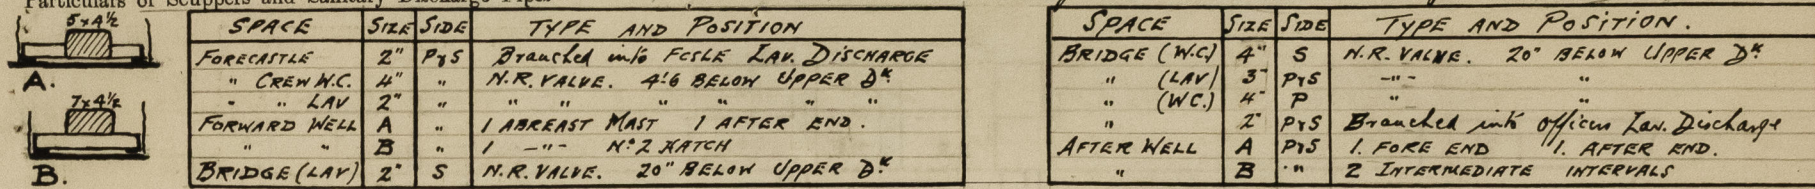 Particulars of Scuppers and Sanitary Discharge Pipes
5 x 4½
A.
7 x 4½
B.
SPACE SIZE SIDE TYPE AND POSITION
FORECASTLE 2" P&S Branched into FCSLE LAV. DISCHARGE
" CREW W.C. 4" " N.R. VALVE. 4'6 BELOW UPPER Dk.
" " LAV 2" " " " " " " "
FORWARD WELL A " 1 ABREAST MAST 1 AFTER END.
" " B " 1 -"- No 2 HATCH
BRIDGE (LAV) 2" S N.R. VALVE. 20" BELOW UPPER Dk.
SPACE SIZE SIDE TYPE AND POSITION.
BRIDGE (W.C) 4" S N.R. VALVE. 20" BELOW UPPER Dk.
" (LAV) 3" P&S -"- "
" (WC.) 4" P " "
" 2" P&S Branched into officers Lav. Discharge
AFTER WELL A P&S 1. FORE END 1. AFTER END.
" B " 2 INTERMEDIATE INTERVALS